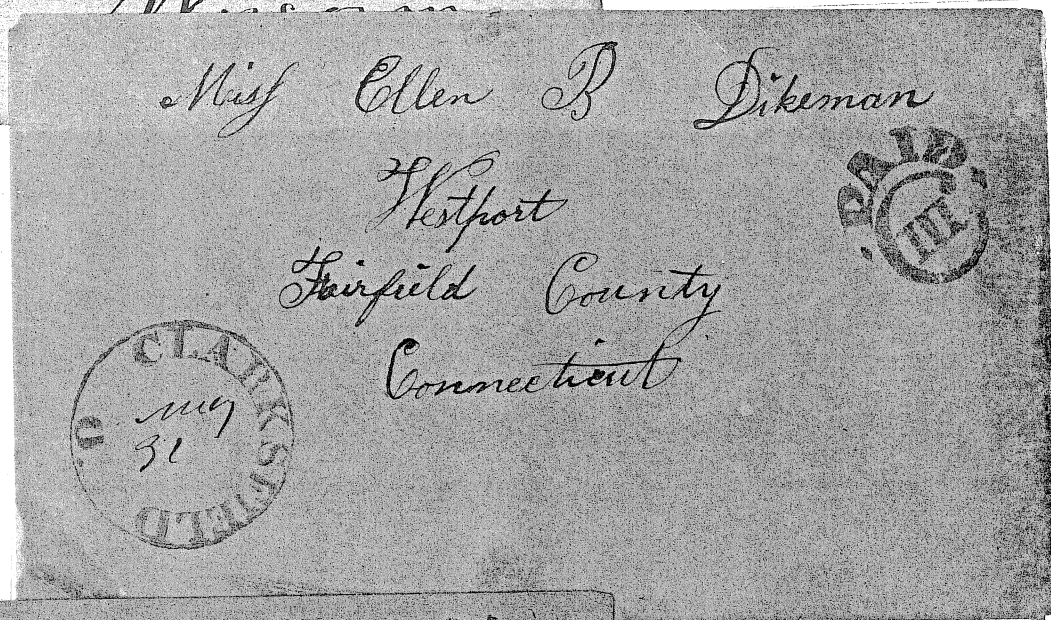 Miss Ellen B Dikeman
PAID
III
Westport
Fairfield County
Connecticut
CLARKSFIELD
O.
May
31